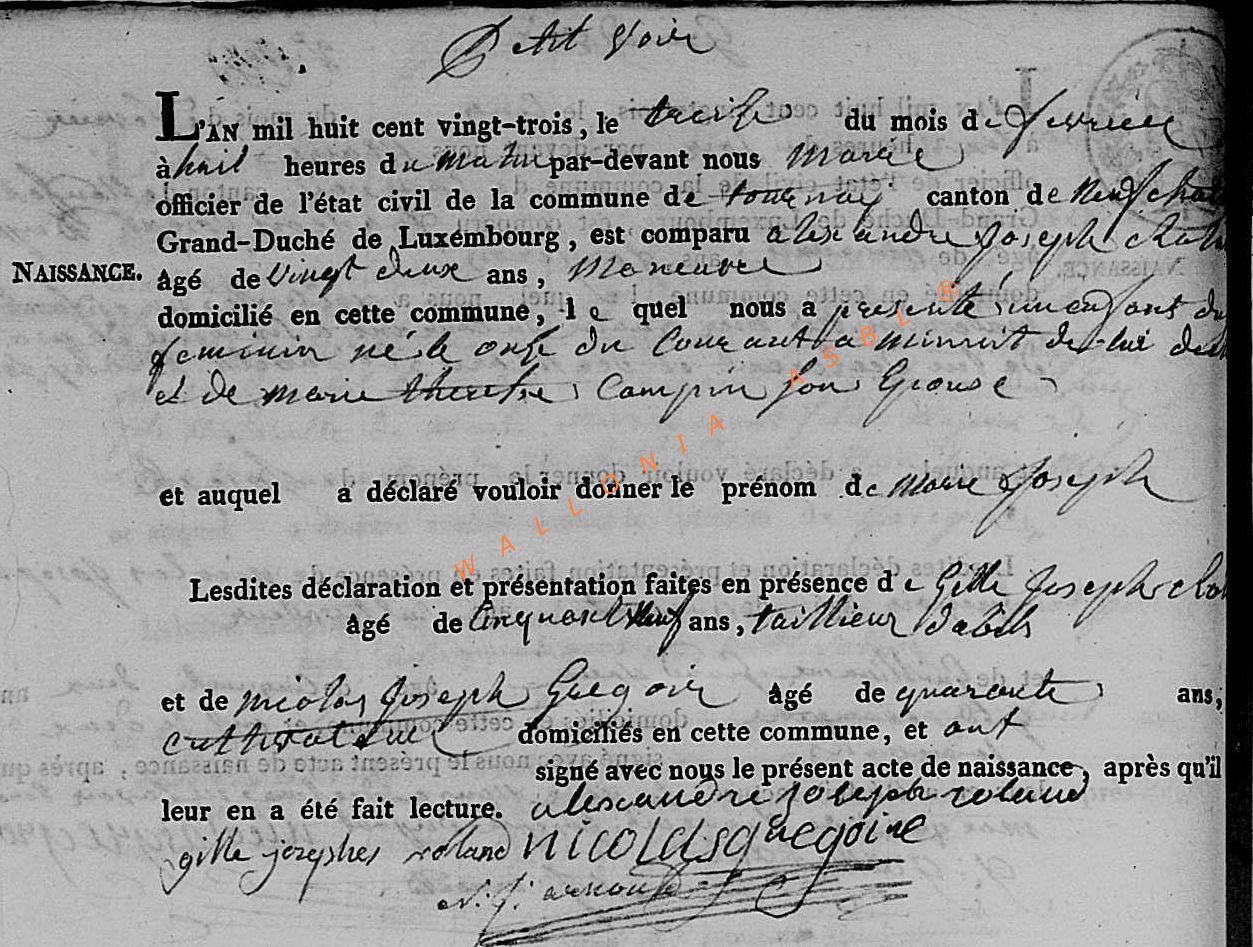 Petit Voir
L'AN mil huit cent vingt-trois, le treise du mois de fevrier
à huit heures du matin par-devant nous Maire
officier de l'état civil de la commune de tournay canton de Neufchat
Grand-Duché de Luxembourg, est comparu alexandre Joseph
NAISSANCE. âgé de vingt deux ans, Maneuvre
domicilié en cette commune, le quel nous a presenté un enfant du
feminin né le onse du Courant a minuit de lui
et de marie therese Campin son Epouse
et auquel a déclaré vouloir donner le prénom de Marie Joseph
Lesdites déclaration et présentation faites en présence de Gille Joseph
âgé de Cinquante neuf ans, taillieur dabits
et de nicolas Joseph Gregoir âgé de quarante ans,
cultivateur domiciliés en cette commune, et ont
signé avec nous le présent acte de naissance, après qu'il
leur en a été fait lecture. alexandre joseph roland
gille josephes roland nicolas gregoire
N. J. arnould
WALLONIA ASBL ®